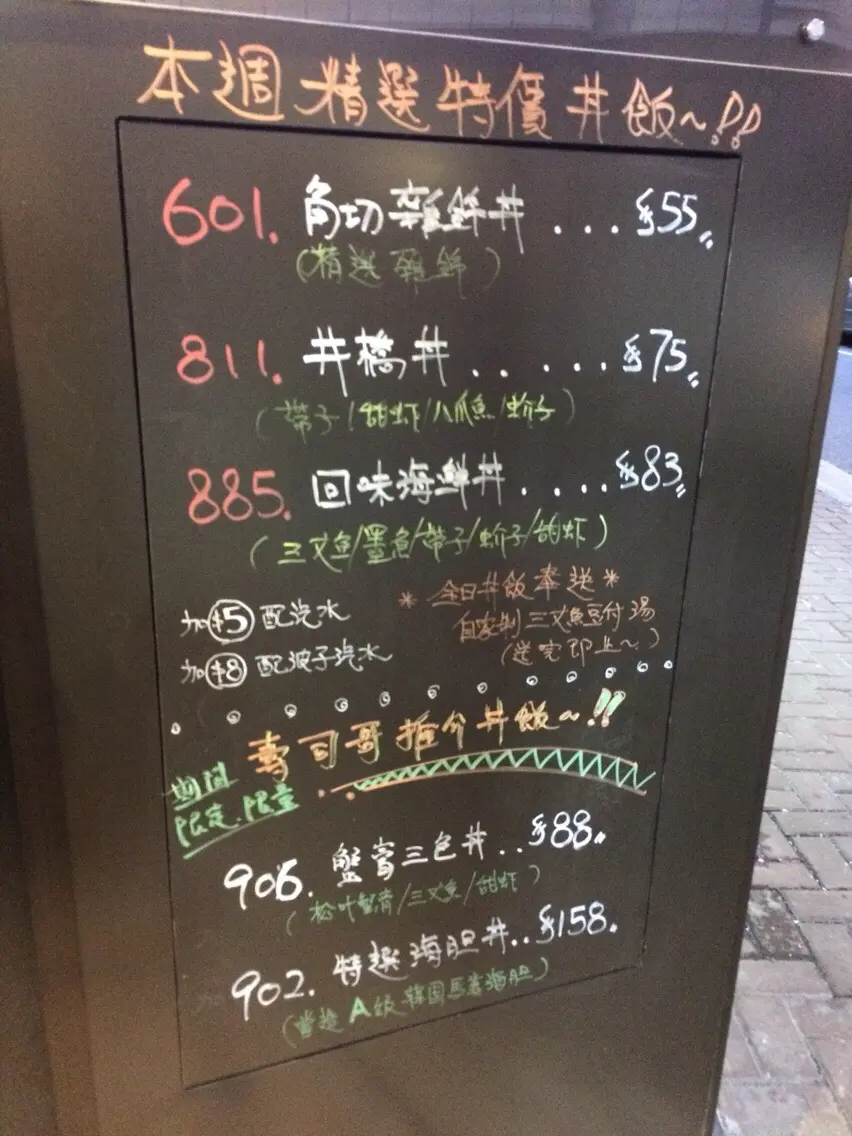 本週精選特價丼飯~!!
601. 角切雜錦丼 ... $55
(精選雜錦)
811. 井橋丼 ...... $75
(帶子/甜虾/八爪魚/蚧子)
885. 回味海鮮丼 .... $83
(三文鱼/墨魚/帶子/蚧子/甜虾)
加$5配汽水
加$8配波子汽水
*全日丼飯奉送*
自家制三文魚豆付湯
(送完即止~)
壽司哥推介丼飯~!!
期間
限定.限量
906. 蟹膏三色丼..$88
(松叶蟹膏/三文魚/甜虾)
902. 特選海胆丼..$158
A級韓国馬糞海胆)